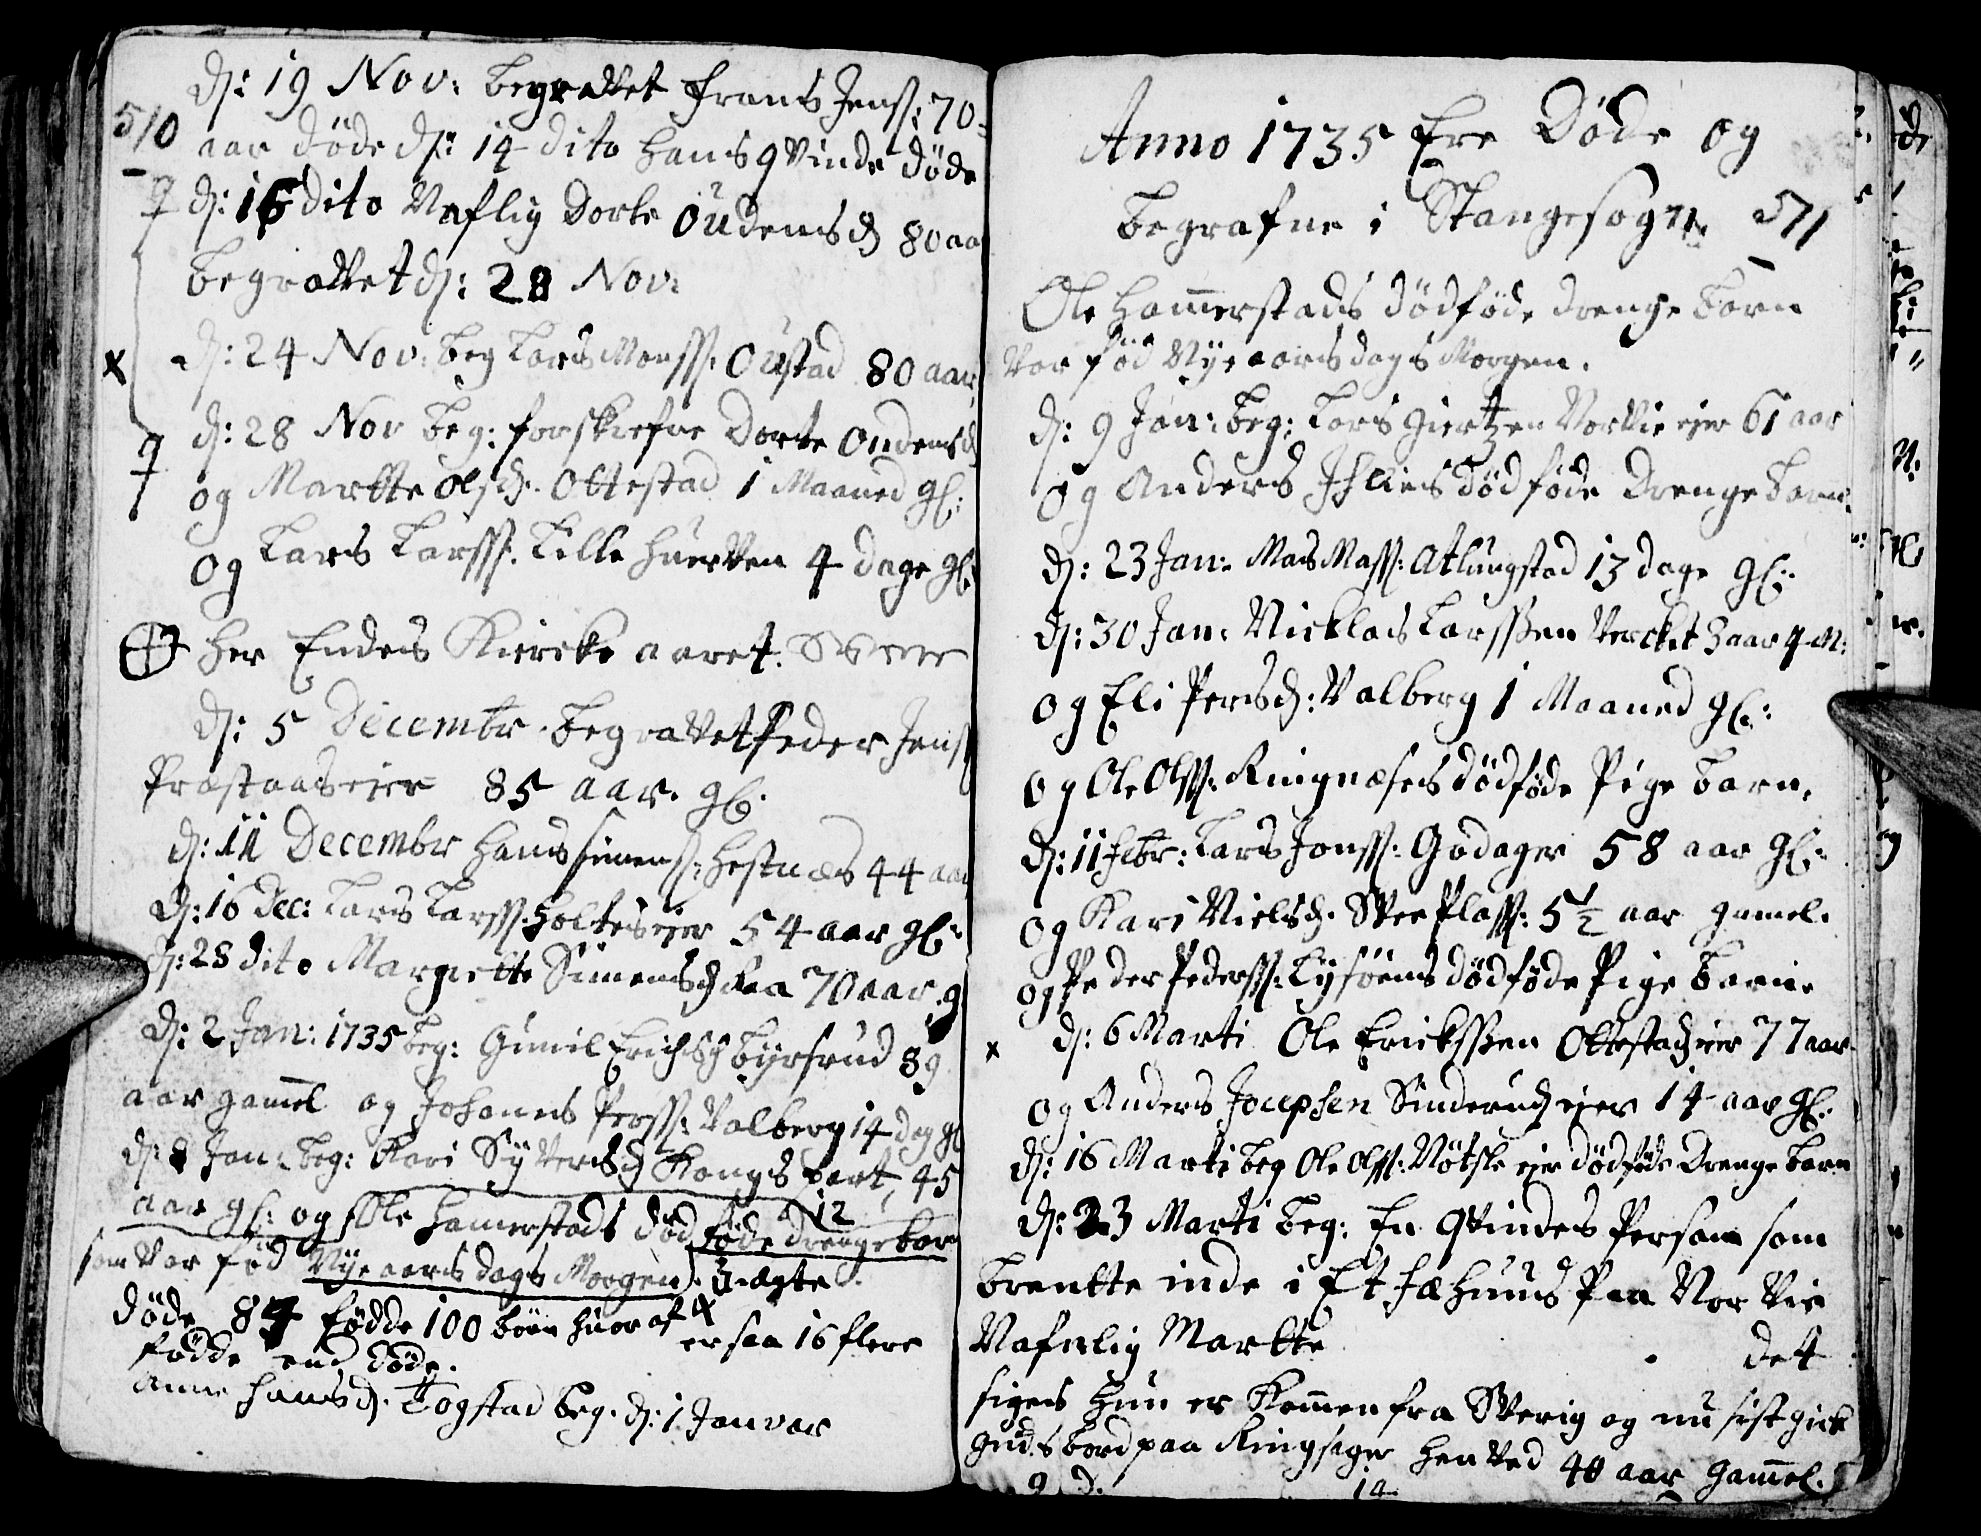 510
d: 19 Nov: begravet Frans Jenss: 70
aar døde d: 14 dito hans qvinde døde
d: 16 dito Naflig Dorte Oudensd 80 aa
begravet d: 28 Nov:
x d: 24 Nov: beg Lars Monss: Oustad 80 aar
d: 28 Nov beg: forskrefne Dorte Oudensd
og Martte Olsd. Ottestad 1 Maaned gl:
og Lars Larss. Lille Huerven 4 dage gl:
Her Endes Kircke aaret.
d: 5 Decembr. begravet Peder Jens
Præstaaseier 85 aar. gl.
d: 11 Decembr Hans Simenss: Hestnæs 44 aar
d: 16 Dec: Lars Larss. Holteseier 54 aar gl:
d: 28 dito Margrette Simensd 70 aar g
d: 2 Jan: 1735 beg: Gunil Erichsd Byrsrud 89
aar gamel og Johannes Perss: Valberg 14 dag gl
d: 8 Jan: beg: Kari Syversd Kongspart, 45
aar gl: og Ole Hamerstads dødføde drengebarn
12
som var fød Nyeaarsdags Morgen). U-ægte
døde 84 fødde 100 børn huoraf 4
er saa 16 flere
fødde end døde.
Anne Hansd. Togstad beg. d: 1 Januar
Anno 1735 Ere Døde og
begrafne i Stangesogn 511
Ole Hammerstads dødføde drenge barn
var fød Nyeaarsdags Morgen.
d: 9 Jan: beg: Lars Giertzen Norvie eier 61 aar
og Anders dødføde drenge barn
d: 23 Jan: Mas Mass: Atlungstad 13 dage gl:
d: 30 Jan: Nicklas Larssen Verket 3 aar 4 M:
og Eli Persd: Valberg 1 Maaned gl:
og Ole Olss: Ringnæses dødføde Pige barn,
d: 11 Febr: Lars Jonss: Godager 58 aar gl:
og Kari Nielsd. Skee Plass: 5 1/2 aar gamel.
og Peder Pederss: Lysøens dødføde Pige barn.
x d: 6 Marti Ole Erickssen Ottestad eier 77 aar
og Anders Jocephsen Sinderud eier 14 aar gl:
d: 16 Marti beg Ole Olss: Nøtsle eier dødføde Drenge barn
d: 23 Marti beg: En qvindes Person som
brentte inde i Et fæhuus paa Nor Vie
Nafnlig Martte det
siges hun er Kommen fra Sverig og nu sist gick
Guds bord paa Ringsager hen ved 40 aar gammel.